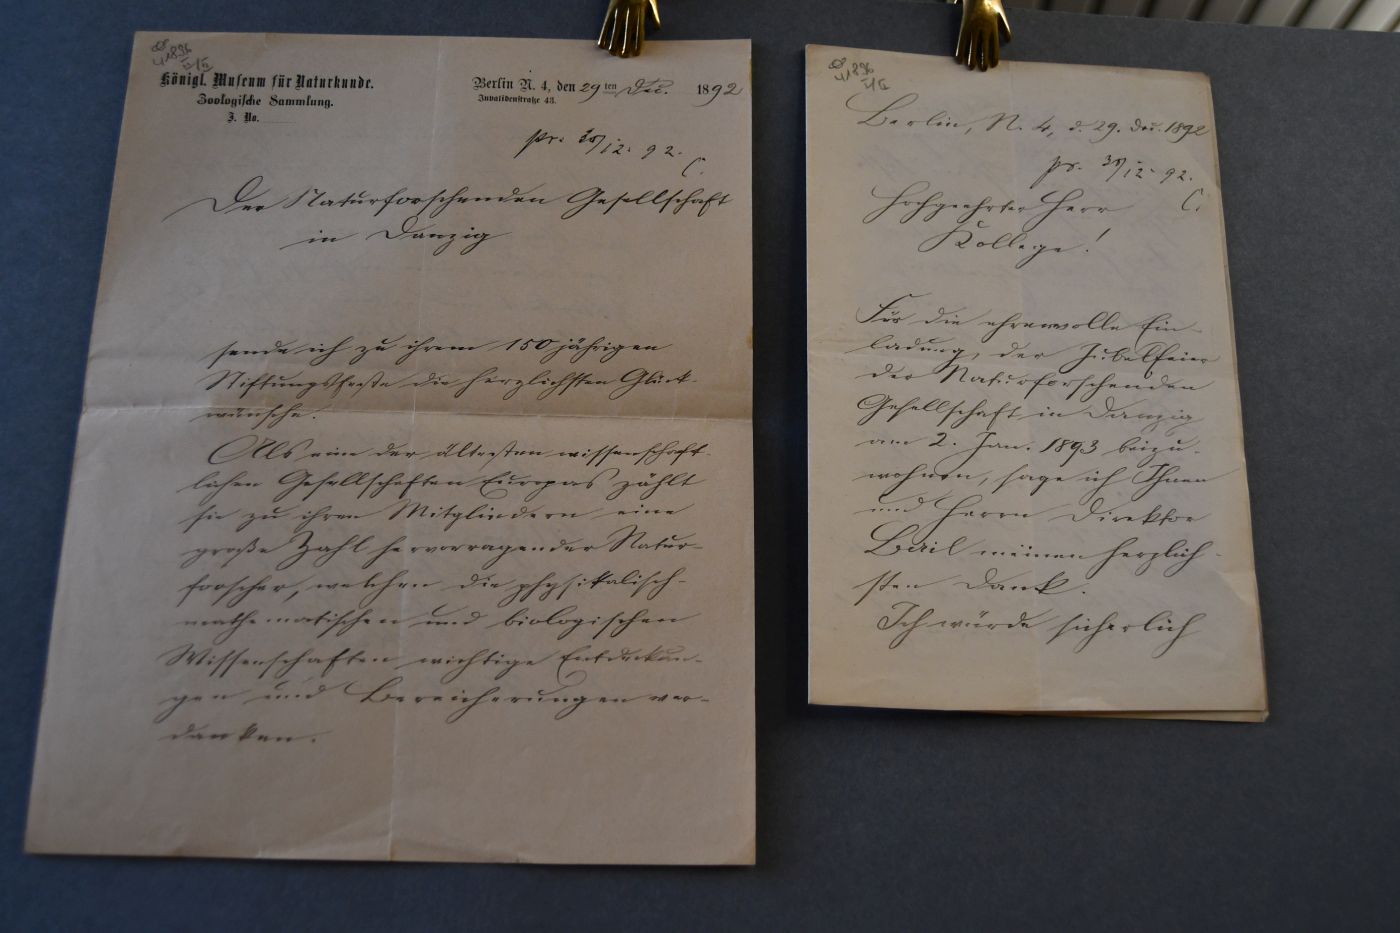 Königl. Museum für Naturkunde.
Zoologische Sammlung.
J. No.
Berlin N. 4, den 29ten Dec. 1892
Invalidenstraße 43.
pr. 30/12. 92.
C.
Der Naturforschenden Gesellschaft
in Danzig
sende ich zu ihrem 150 jährigen
Stiftungsfeste die herzlichsten Glück-
wünsche.
Als eine der ältesten wissenschaft-
lichen Gesellschaften Europas zählt
sie zu ihren Mitgliedern eine
große Zahl hervorragender Natur-
forscher, welchen die physikalisch-
mathematischen und biologischen
Wissenschaften wichtige Entdeckun-
gen und Bereicherungen ver-
danken.
Berlin, N. 4, d. 29. Dec. 1892
pr. 30/12. 92.
C.
Hochgeehrter Herr
Kollege!
Für die ehrenvolle Ein-
ladung, der Jubelfeier
der Naturforschenden
Gesellschaft in Danzig
am 2. Jan. 1893 beizu-
wohnen, sage ich Ihnen
und Herrn Direktor
Bail meinen herzlich-
sten Dank.
Ich würde sicherlich